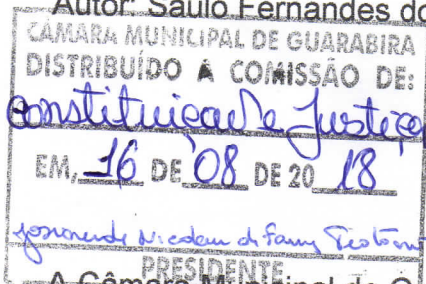 Autor: Saulo Fernandes do
CÂMARA MUNICIPAL DE GUARABIRA
DISTRIBUÍDO A COMISSÃO DE:
Constituição e Justiça
EM, 16 DE 08 DE 20 18
PRESIDENTE
A Câmara Municipal de G